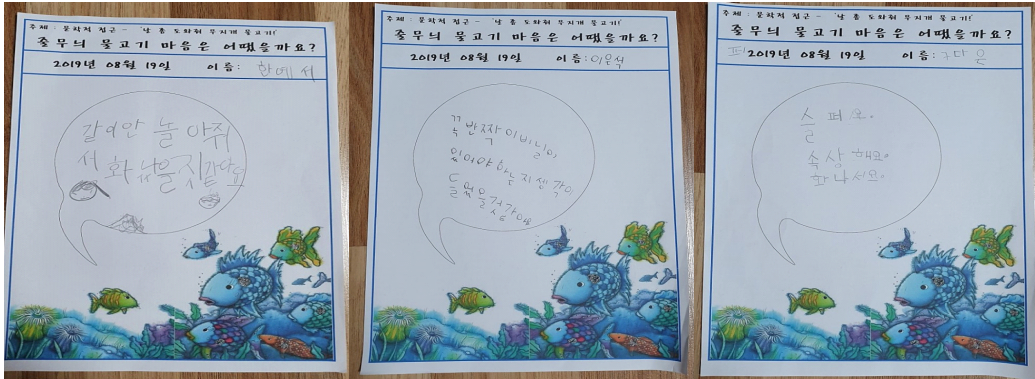 주제 : 문학적 접근 - '날 좀 도와줘 무지개 물고기!'
줄무늬 물고기 마음은 어땠을까요?
2019년 08월 19일 이름: 함예서
같이안 놀 아줘
서 화 났을짓같아요
주제 : 문학적 접근 - '날 좀 도와줘 무지개 물고기!'
줄무늬 물고기 마음은 어땠을까요?
2019년 08월 19일 이름:
꼭 반짝이비닐이
있어야하는지 생각이
들었을것같아요
주제 : 문학적 접근 - '날 좀 도와줘 무지개 물고기!'
줄무늬 물고기 마음은 어땠을까요?
2019년 08월 19일 이름: 구다은
슬퍼요.
속상해요.
화나세요.